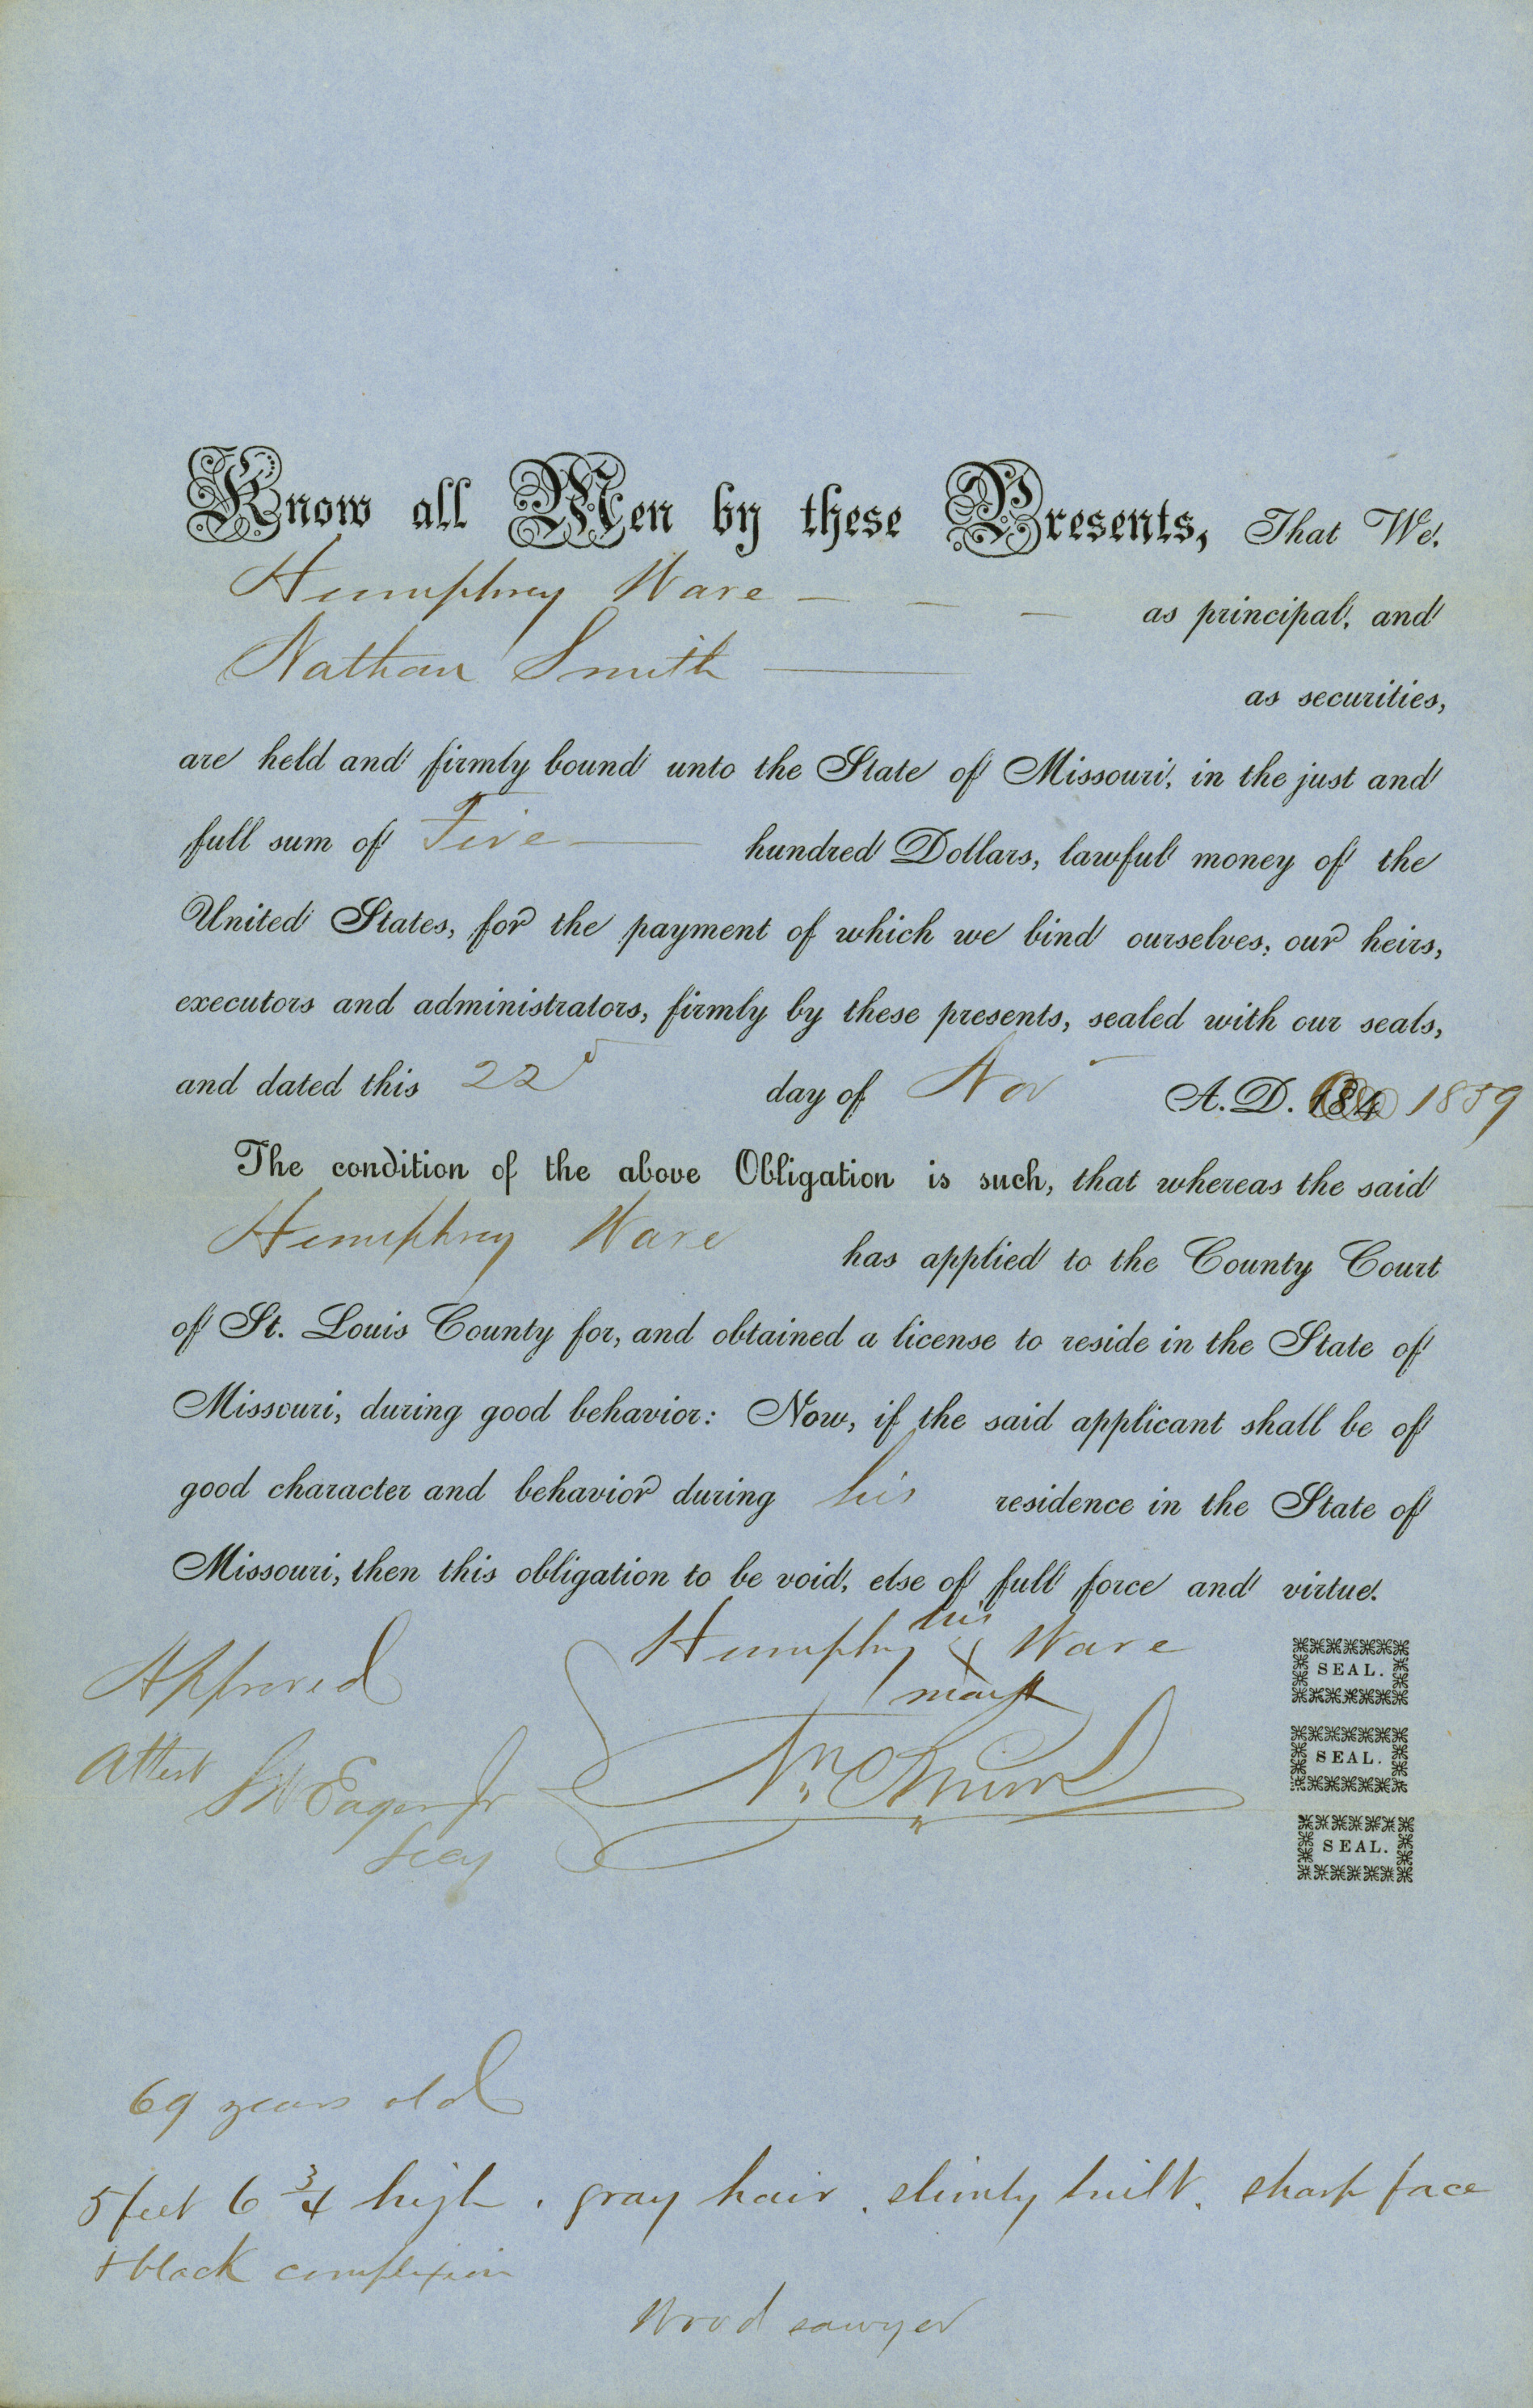 Know all Men by these Presents, That We,
Humphrey Ware — — — as principal, and
Nathan Smith — as securities,
are held and firmly bound unto the State of Missouri, in the just and
full sum of Five — hundred Dollars, lawful money of the
United States, for the payment of which we bind ourselves, our heirs,
executors and administrators, firmly by these presents, sealed with our seals,
and dated this 22d day of Nov A. D. 184 1859
The condition of the above Obligation is such, that whereas the said
Humphrey Ware has applied to the County Court
of St. Louis County for, and obtained a license to reside in the State of
Missouri, during good behavior: Now, if the said applicant shall be of
good character and behavior during his residence in the State of
Missouri, then this obligation to be void, else of full force and virtue.
Humphy his x mark Ware SEAL.
Approved
SEAL.
Attest Wm Eager Jr
SEAL.
69 years old
5 feet 6 3/4 high. gray hair. slimly built. sharp face
+ black complexion
Wood sawyer